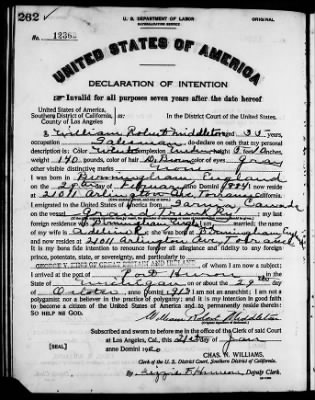 262 ✓
U. S. DEPARTMENT OF LABOR
NATURALIZATION SERVICE
ORIGINAL
No. 12362
UNITED STATES OF AMERICA
DECLARATION OF INTENTION
Invalid for all purposes seven years after the date hereof
United States of America,
Southern District of California, ss:
County of Los Angeles
In the District Court of the United States.
I, William Robert Middleton, aged 35 years,
occupation Salesman, do declare on oath that my personal
description is: Color White, complexion, height 5 feet inches,
weight 140 pounds, color of hair D. Brown, color of eyes Gray
other visible distinctive marks none
I was born in Birmingham England
on the 28 day of February, anno Domini 1884; I now reside
at 2011 Arlington Ave, Torrance, California.
I emigrated to the United States of America from Sarnia Canada
on the vessel Grand Trunk Ry; my last
foreign residence was Birmingham Eng; I am married; the name
of my wife is Adeline; she was born at Birmingham Eng
and now resides at 2011 Arlington Ave, Torrance
It is my bona fide intention to renounce forever all allegiance and fidelity to any foreign
prince, potentate, state, or sovereignty, and particularly to
GEORGE V, KING OF GREAT BRITAIN AND IRELAND, of whom I am now a subject;
I arrived at the port of Port Huron, in the
State of Michigan, on or about the 29 day
of October, anno Domini 1912; I am not an anarchist; I am not a
polygamist nor a believer in the practice of polygamy; and it is my intention in good faith
to become a citizen of the United States of America and to permanently reside therein:
SO HELP ME GOD.
William Robert Middleton
(Original signature of declarant.)
Subscribed and sworn to before me in the office of the Clerk of said Court
at Los Angeles, Cal., this day of Jan
[SEAL]
anno Domini 1920
CHAS. N. WILLIAMS,
Clerk of the U. S. District Court, Southern District of California.
By, Deputy Clerk.